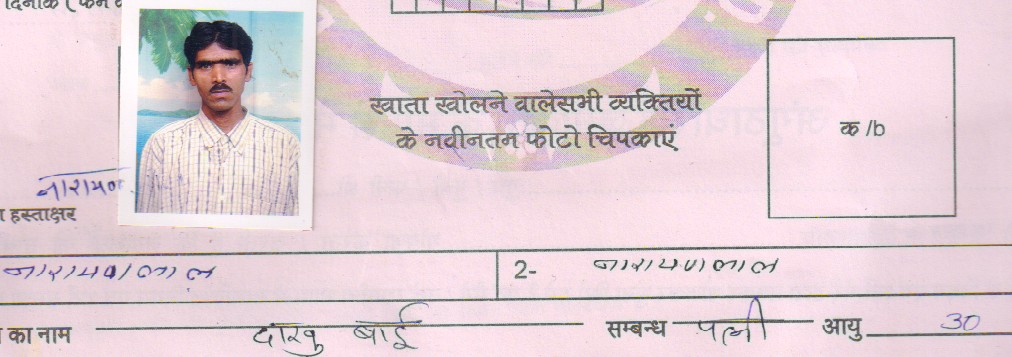 दिनांक (फर्म
खाता खोलने वालेसभी व्यक्तियों
के नवीनतम फोटो चिपकाएं
क /b
नारायण
हस्ताक्षर
नारायणलाल
2- नारायणलाल
का नाम दाखु बाई सम्बन्ध पत्नी आयु 30